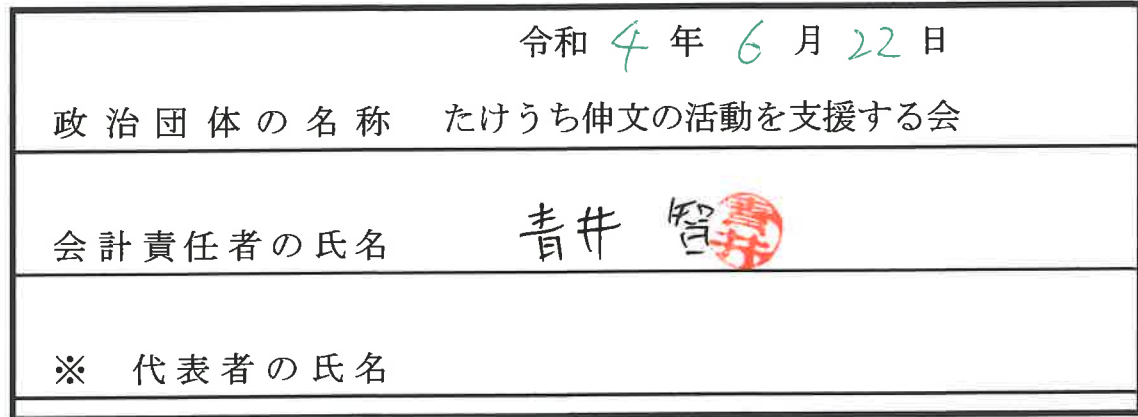 令和 4 年 6 月 22 日
政治団体の名称 たけうち伸文の活動を支援する会
会計責任者の氏名 青井 智 青井
※ 代表者の氏名